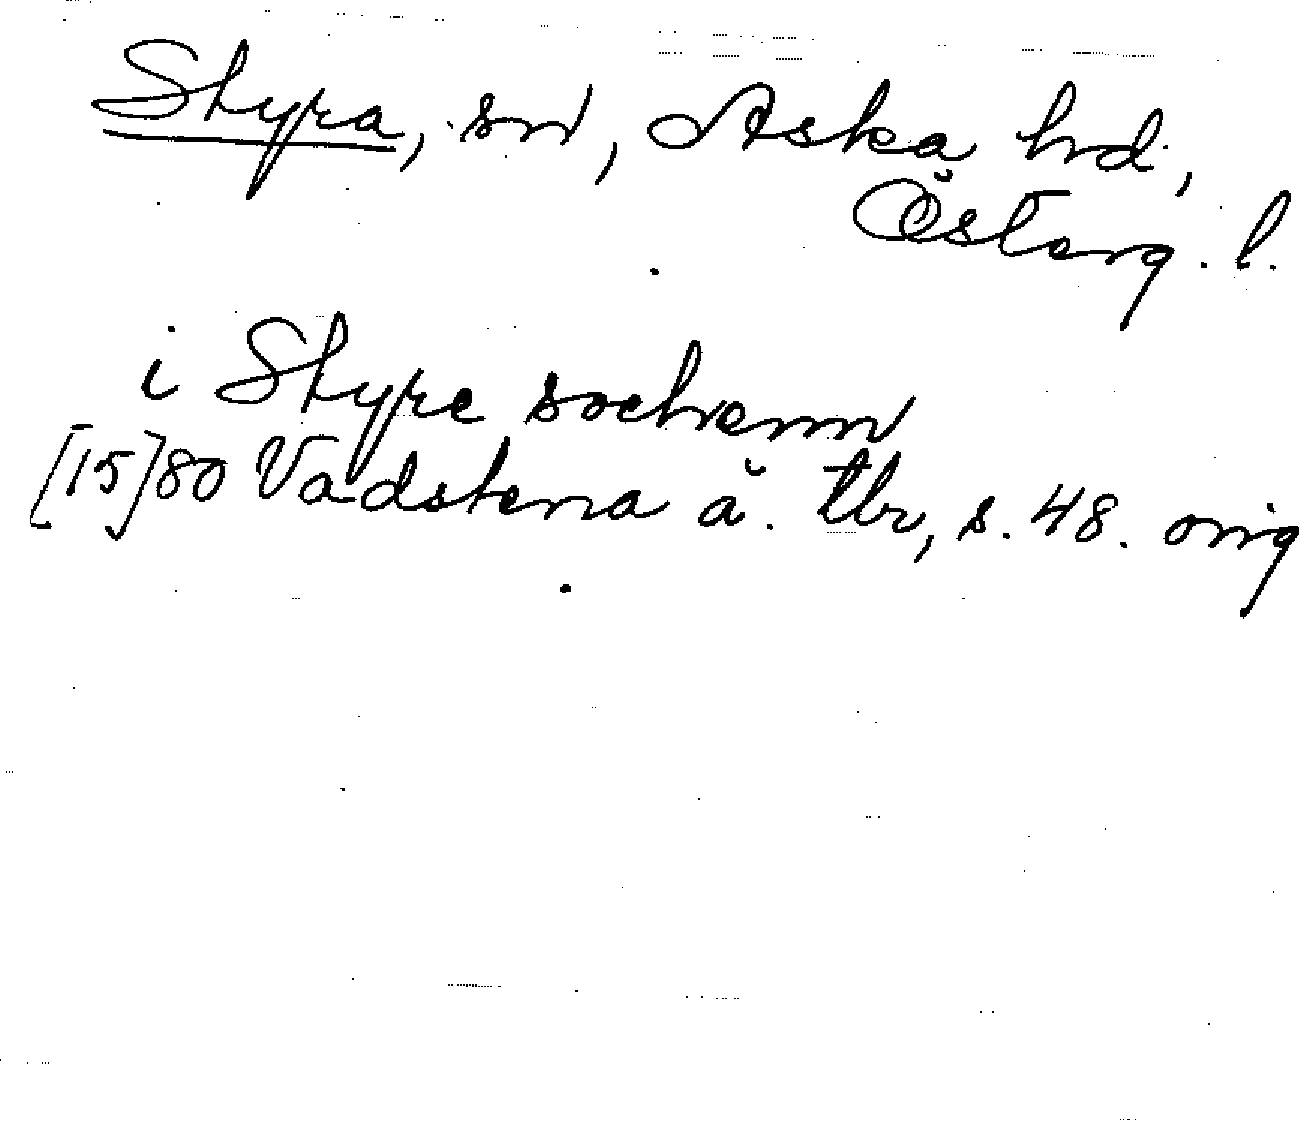 Styra, sn, Aska hd,
Österg. l.
i Styre sochenn
[15]80 Vadstena ä. tbr, s. 48. orig